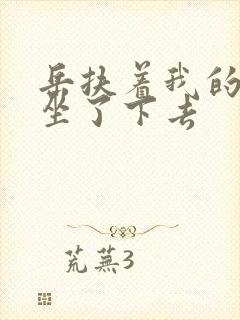 岳扶着我的
坐了下去
荒蕪3